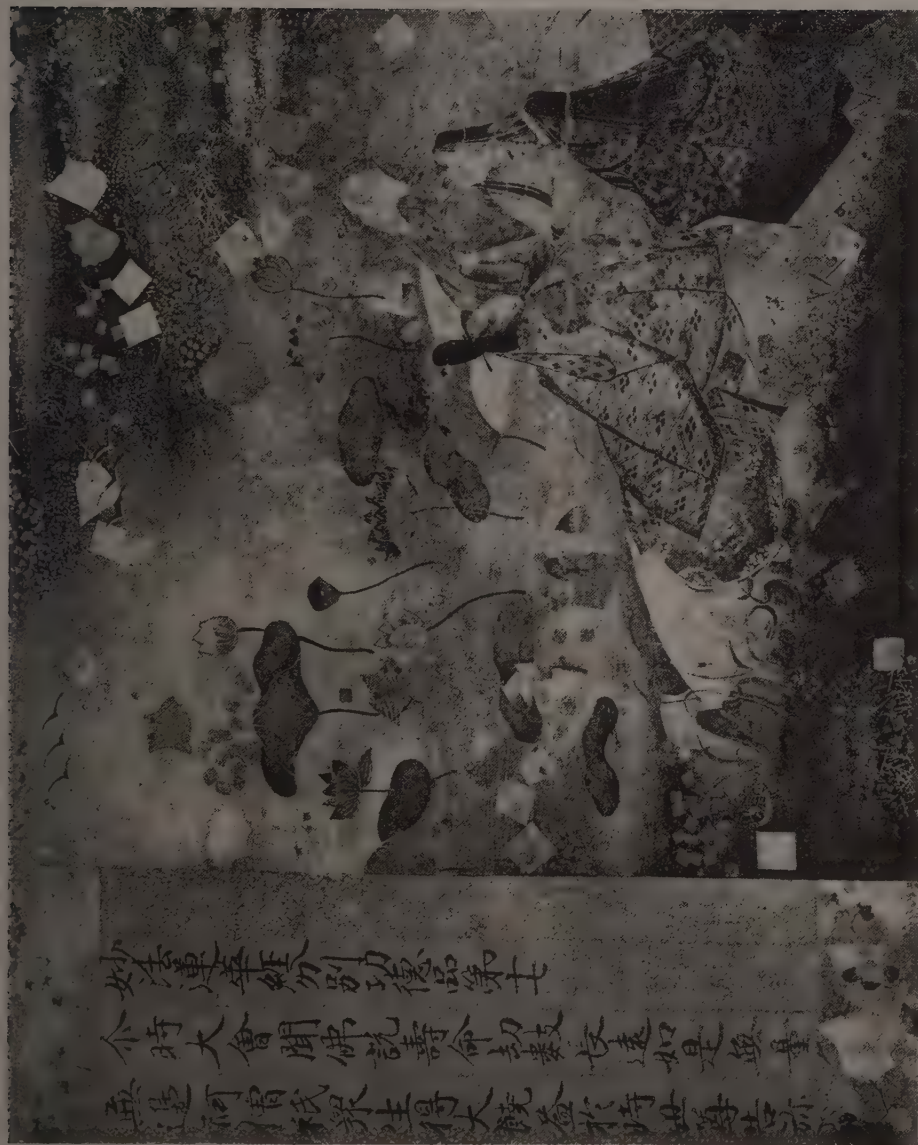 妙法蓮華經分別功德品第十七
尒時大會聞佛說壽命劫數長遠如是無量
無邊阿僧祇衆生得大饒益於時世尊告弥